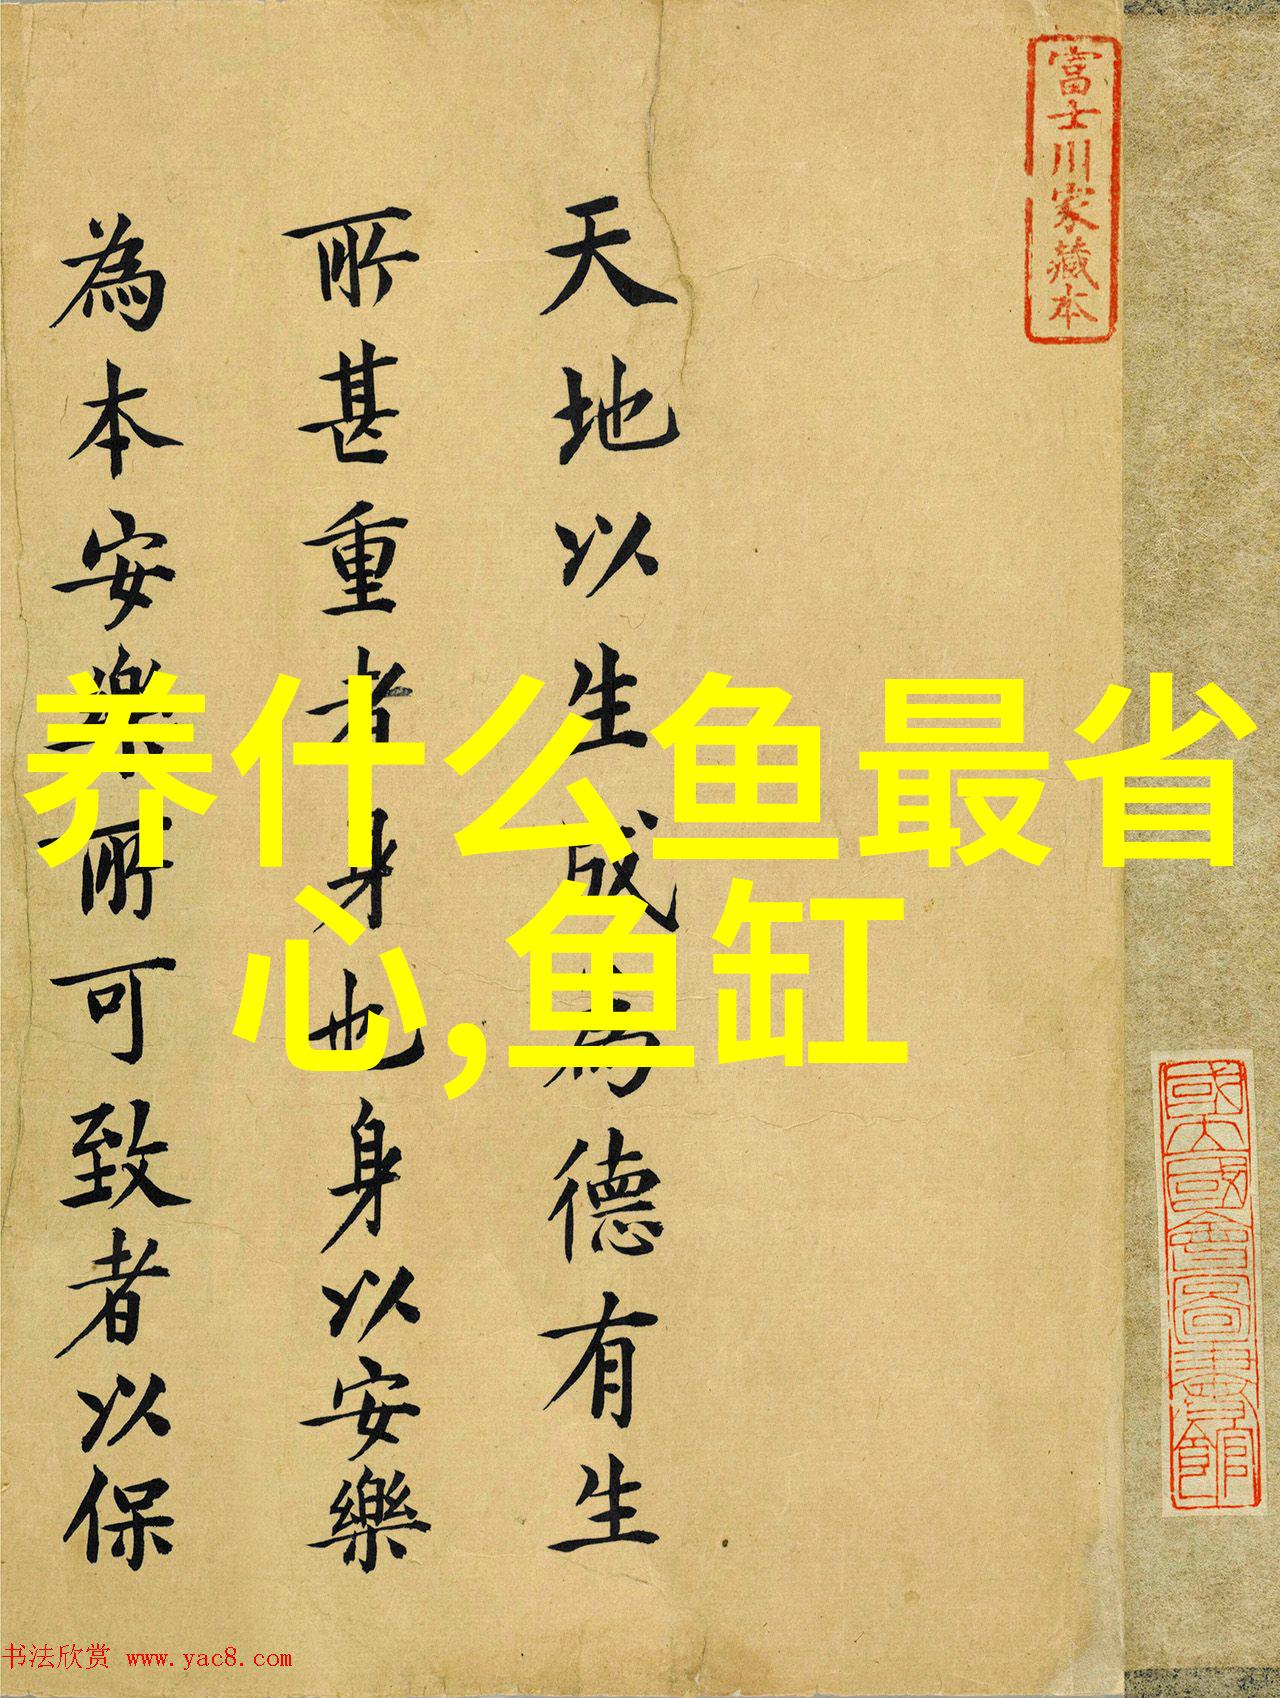 富士川家藏本
天地以生成為德有生
所甚重者身也身以安樂
為本安樂所可致者以保
养什么鱼最省
心,鱼缸
书法欣赏 www.yac8.com